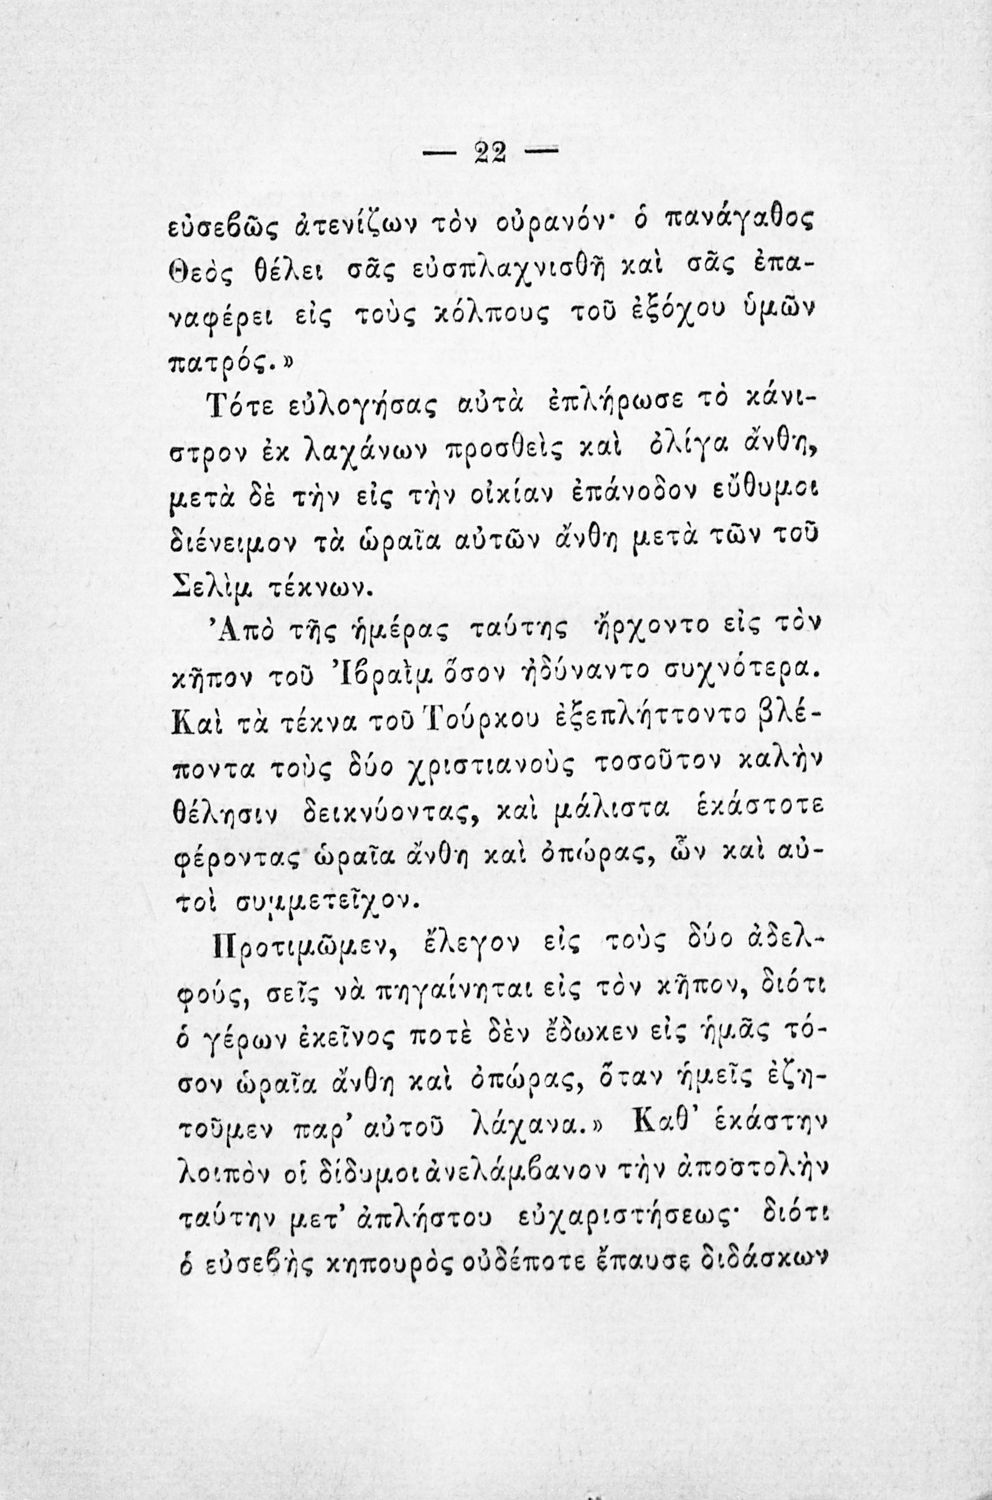 — 22 —
εὐσεβῶς ἀτενίζων τὸν οὐρανόν· ὁ πανάγαθος
Θεὸς θέλει σᾶς εὐσπλαχνισθῆ καὶ σᾶς ἐπα-
ναφέρει εἰς τοὺς κόλπους τοῦ ἐξόχου ὑμῶν
πατρός.»
Τότε εὐλογήσας αὐτὰ ἐπλήρωσε τὸ κάνι-
στρον ἐκ λαχάνων προσθεὶς καὶ ὀλίγα ἄνθη,
μετὰ δὲ τὴν εἰς τὴν οἰκίαν ἐπάνοδον εὔθυμοι
διένειμον τὰ ὡραῖα αὐτῶν ἄνθη μετὰ τῶν τοῦ
Σελὶμ τέκνων.
Ἀπὸ τῆς ἡμέρας ταύτης ἤρχοντο εἰς τὸν
κῆπον τοῦ Ἰβραὶμ ὅσον ἠδύναντο συχνότερα.
Καὶ τὰ τέκνα τοῦ Τούρκου ἐξεπλήττοντο βλέ-
ποντα τοὺς δύο χριστιανοὺς τοσοῦτον καλὴν
θέλησιν δεικνύοντας, καὶ μάλιστα ἑκάστοτε
φέροντας ὡραῖα ἄνθη καὶ ὀπώρας, ὧν καὶ αὐ-
τοὶ συμμετεῖχον.
Προτιμῶμεν, ἔλεγον εἰς τοὺς δύο ἀδελ-
φούς, σεῖς νὰ πηγαίνηται εἰς τὸν κῆπον, διότι
ὁ γέρων ἐκεῖνος ποτὲ δὲν ἔδωκεν εἰς ἡμᾶς τό-
σον ὡραῖα ἄνθη καὶ ὀπώρας, ὅταν ἡμεῖς ἐζη-
τοῦμεν παρ' αὐτοῦ λάχανα.» Καθ' ἑκάστην
λοιπὸν οἱ δίδυμοι ἀνελάμβανον τὴν ἀποστολὴν
ταύτην μετ' ἀπλήστου εὐχαριστήσεως· διότι
ὁ εὐσεβὴς κηπουρὸς οὐδέποτε ἔπαυσε διδάσκων